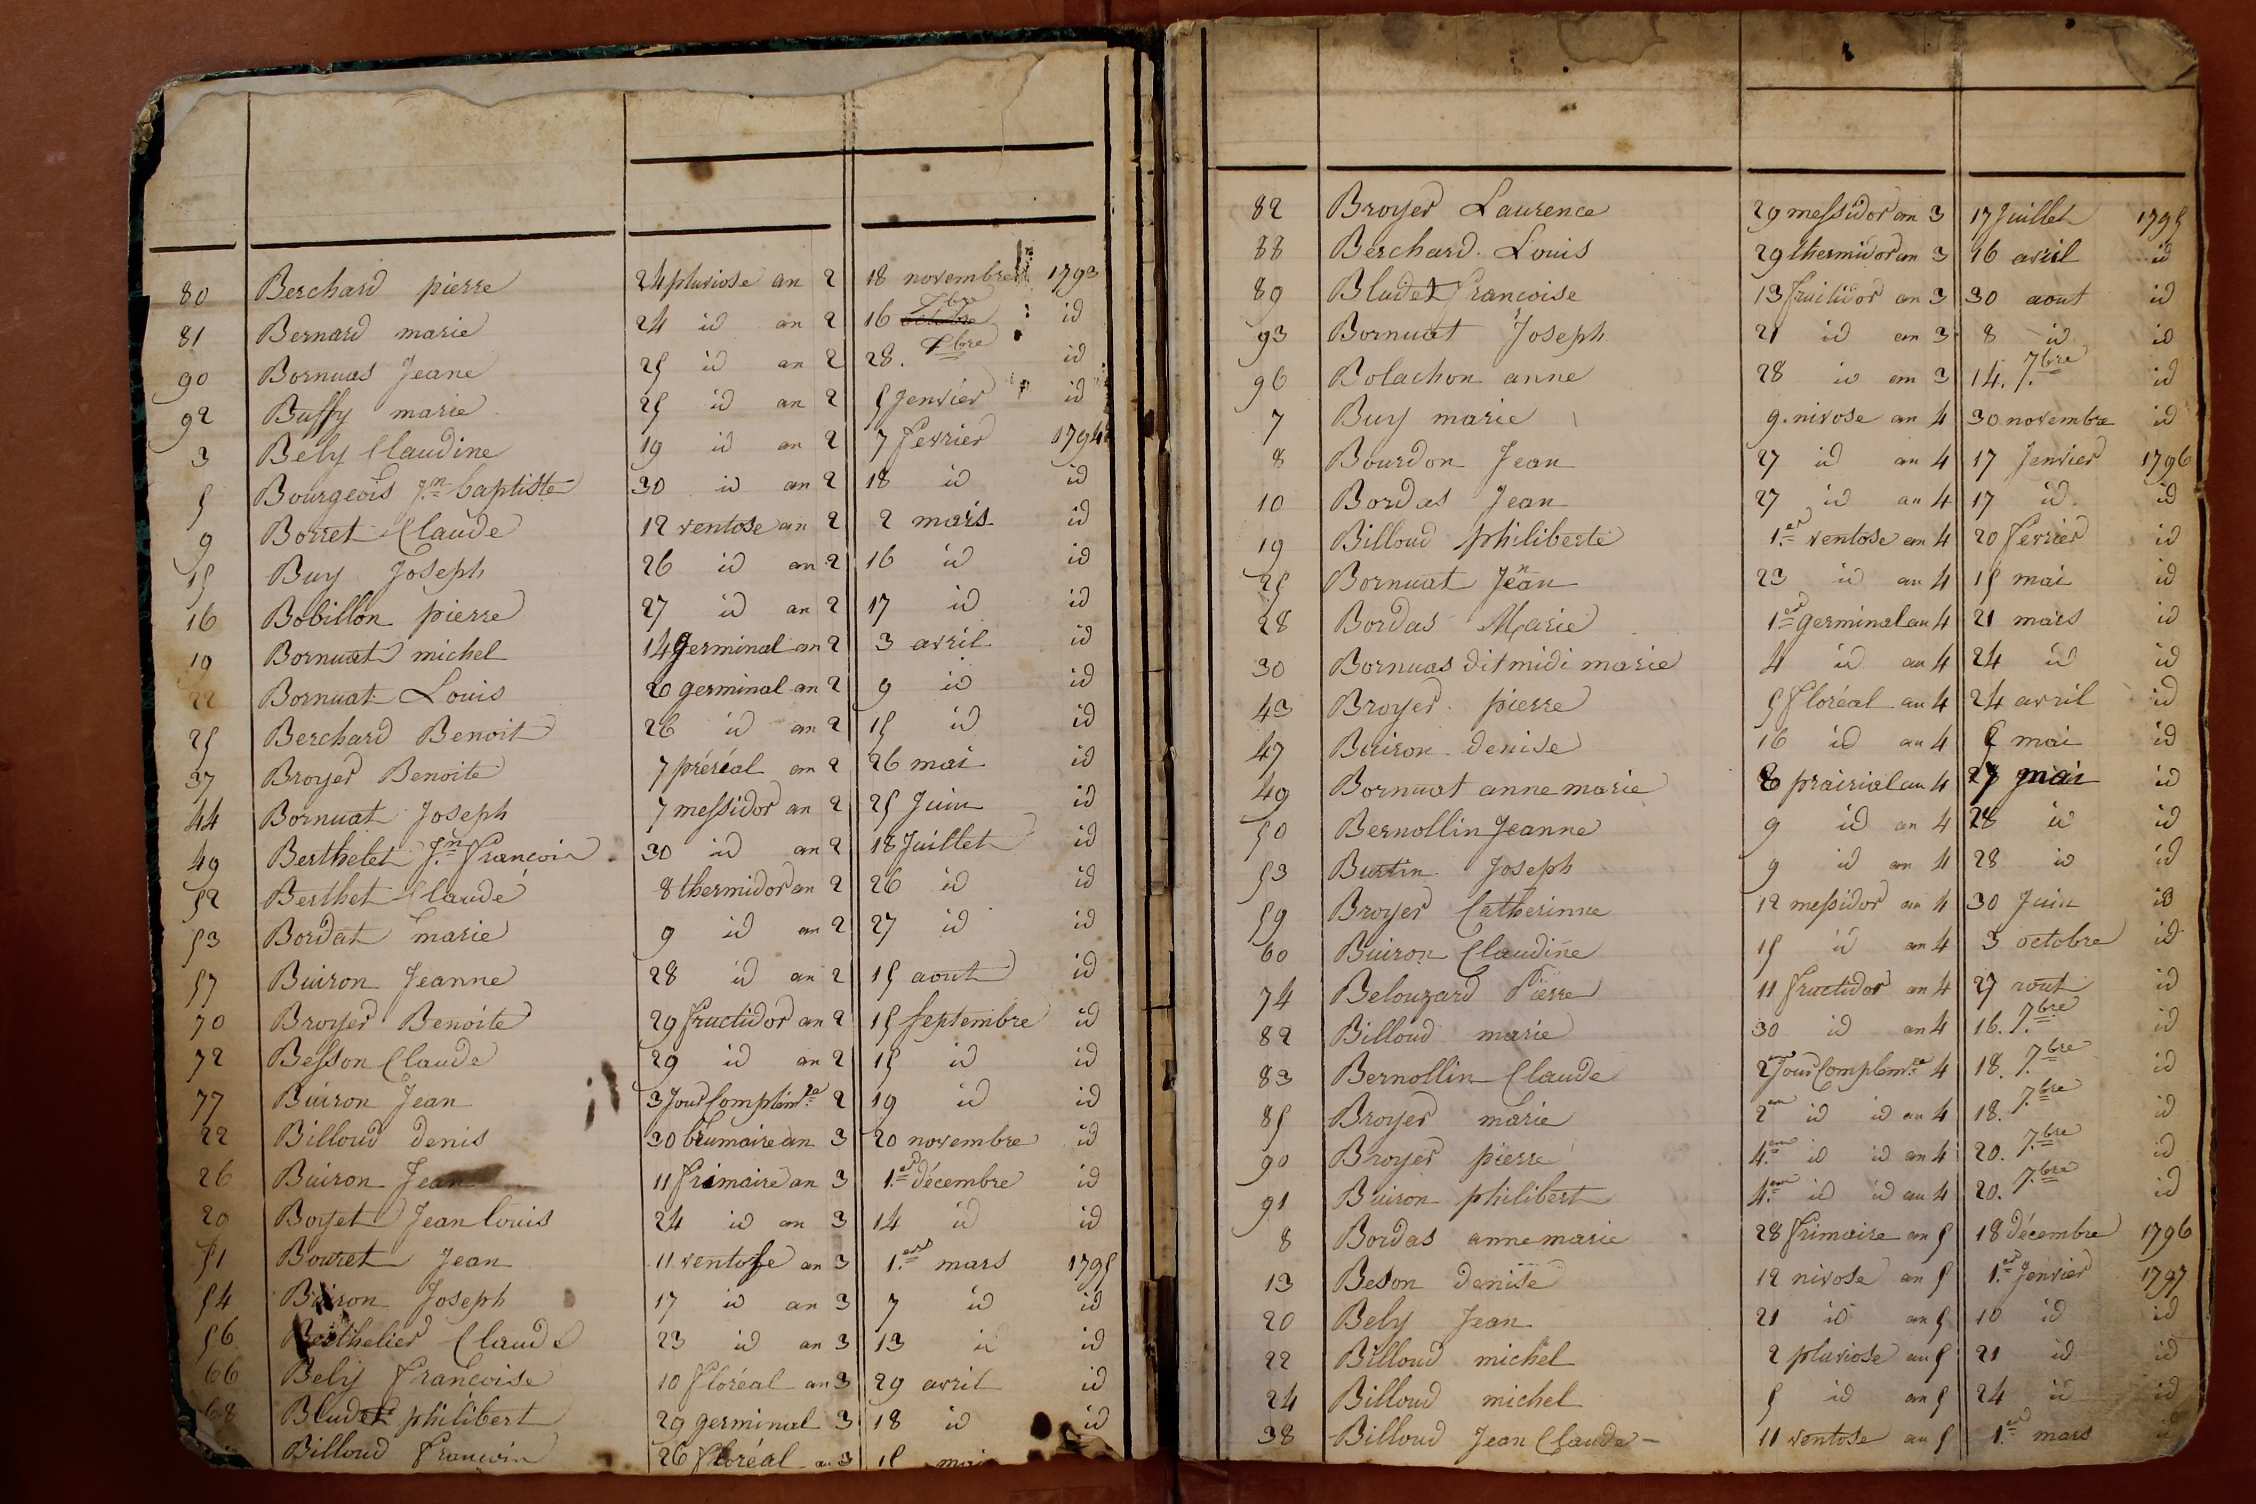 80 Berchard pierre 24 pluviose an 2 18 novembre 1793
81 Bernard marie 24 id an 2 16 id
90 Bornuas Jeane 25 id an 2 28. id
92 Buffy marie 25 id an 2 5 Jenvier id
3 Bely Claudine 19 id an 2 7 fevrier 1794
5 Bourgeois Jn baptiste 30 id an 2 18 id id
9 Borret Claude 12 ventose an 2 2 mars id
15 Buy Joseph 26 id an 2 16 id id
16 Bobillon pierre 27 id an 2 17 id id
19 Bornuat michel 14 germinal an 2 3 avril id
22 Bornuat Louis 20 germinal an 2 9 id id
25 Berchard Benoit 26 id an 2 15 id id
37 Broyer Benoite 7 préréal an 2 26 mai id
44 Bornuat Joseph 7 messidor an 2 25 Juin id
49 Berthelet Jn francois 30 id an 2 18 Juillet id
52 Berthet Claude 8 thermidor an 2 26 id id
53 Bordat marie 9 id an 2 27 id id
57 Buiron Jeanne 28 id an 2 15 aout id
70 Broyer Benoite 29 fructidor an 2 15 septembre id
72 Besson Claude 29 id an 2 15 id id
77 Buiron Jean 3 Jour Complémre 2 19 id id
22 Billoud denis 30 brumaire an 3 20 novembre id
26 Buiron Jean 11 frimaire an 3 1er décembre id
20 Boyet Jean Louis 24 id an 3 14 id id
51 Bouret Jean 11 ventose an 3 1er mars 1795
54 Buiron Joseph 17 id an 3 7 id id
56 Berthelier Claude 23 id an 3 13 id id
66 Bely francoise 10 floréal an 3 29 avril id
68 Bludet philibert 29 germinal 3 18 id id
Billoud francois 26 floréal an 3 15 mai
82 Broyer Laurence 29 messidor an 3 17 Juillet 1795
88 Berchard Louis 29 thermidor an 3 16 avril id
89 Bludet francoise 13 fructidor an 3 30 aout id
93 Bornuat Joseph 21 id an 3 8 id id
96 Bolachon anne 28 id an 3 14. 7.bre id
7 Buy marie 9. nivose an 4 30 novembre id
8 Bourdon Jean 27 id an 4 17 Jenvier 1796
10 Bordas Jean 27 id an 4 17 id id
19 Billoud philiberte 1er ventose an 4 20 fevrier id
25 Bornuat Jean 23 id an 4 15 mai id
28 Bordas Marie 1er germinal an 4 21 mars id
30 Bornuas dit midi marie 4 id an 4 24 id id
43 Broyer pierre 5 floréal an 4 24 avril id
47 Buiron denise 16 id an 4 mai id
49 Bornuat anne marie 8 prairial an 4 27 mai id
50 Bernollin Jeanne 9 id an 4 28 id id
53 Burtin Joseph 9 id an 4 28 id id
59 Broyer Catherinne 12 messidor an 4 30 Juin id
60 Buiron Claudine 15 id an 4 3 octobre id
74 Belouzard Pierre 11 fructidor an 4 27 aout id
82 Billoud marie 30 id an 4 16. 7.bre id
83 Bernollin Claude 2 Jour Complemre 4 18. 7.bre id
85 Broyer marie 2em id id an 4 18. 7.bre id
90 Broyer pierre 4.em id id an 4 20. 7.bre id
91 Buiron philibert 4.em id id an 4 20. 7.bre id
8 Bordas anne marie 28 frimaire an 5 18 décembre 1796
13 Beson denise 12 nivose an 5 1er Jenvier 1797
20 Bely Jean 21 id an 5 10 id id
22 Billoud michel 2 pluviose an 5 21 id id
24 Billoud michel 5 id an 5 24 id id
38 Billoud Jean Claude 11 ventose an 5 1er mars id